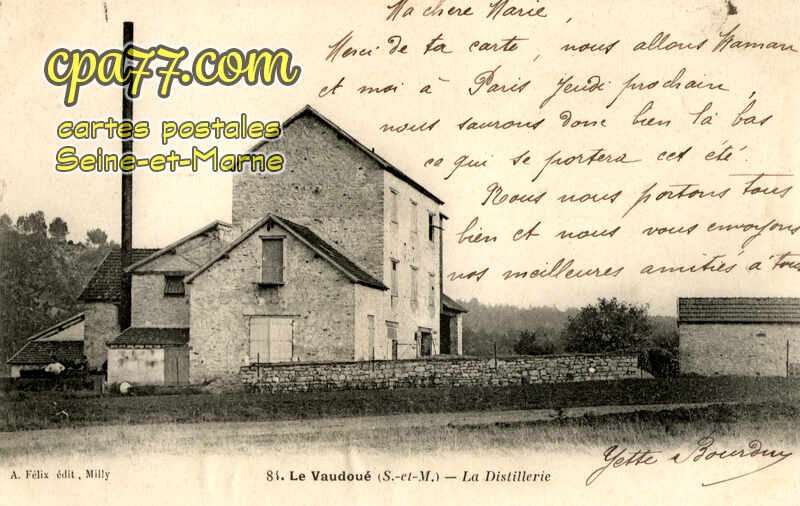 Ma chère Marie,
Merci de ta carte, nous allons Maman
et moi à Paris Jeudi prochain,
nous saurons donc bien là bas
ce qui se portera cet été.
Nous nous portons tous
bien et nous vous envoyons
nos meilleures amitiés à tous
cpa77.com
cartes postales
Seine-et-Marne
Yette Bourduy
A. Félix édit, Milly
84. Le Vaudoué (S.-et-M.) — La Distillerie